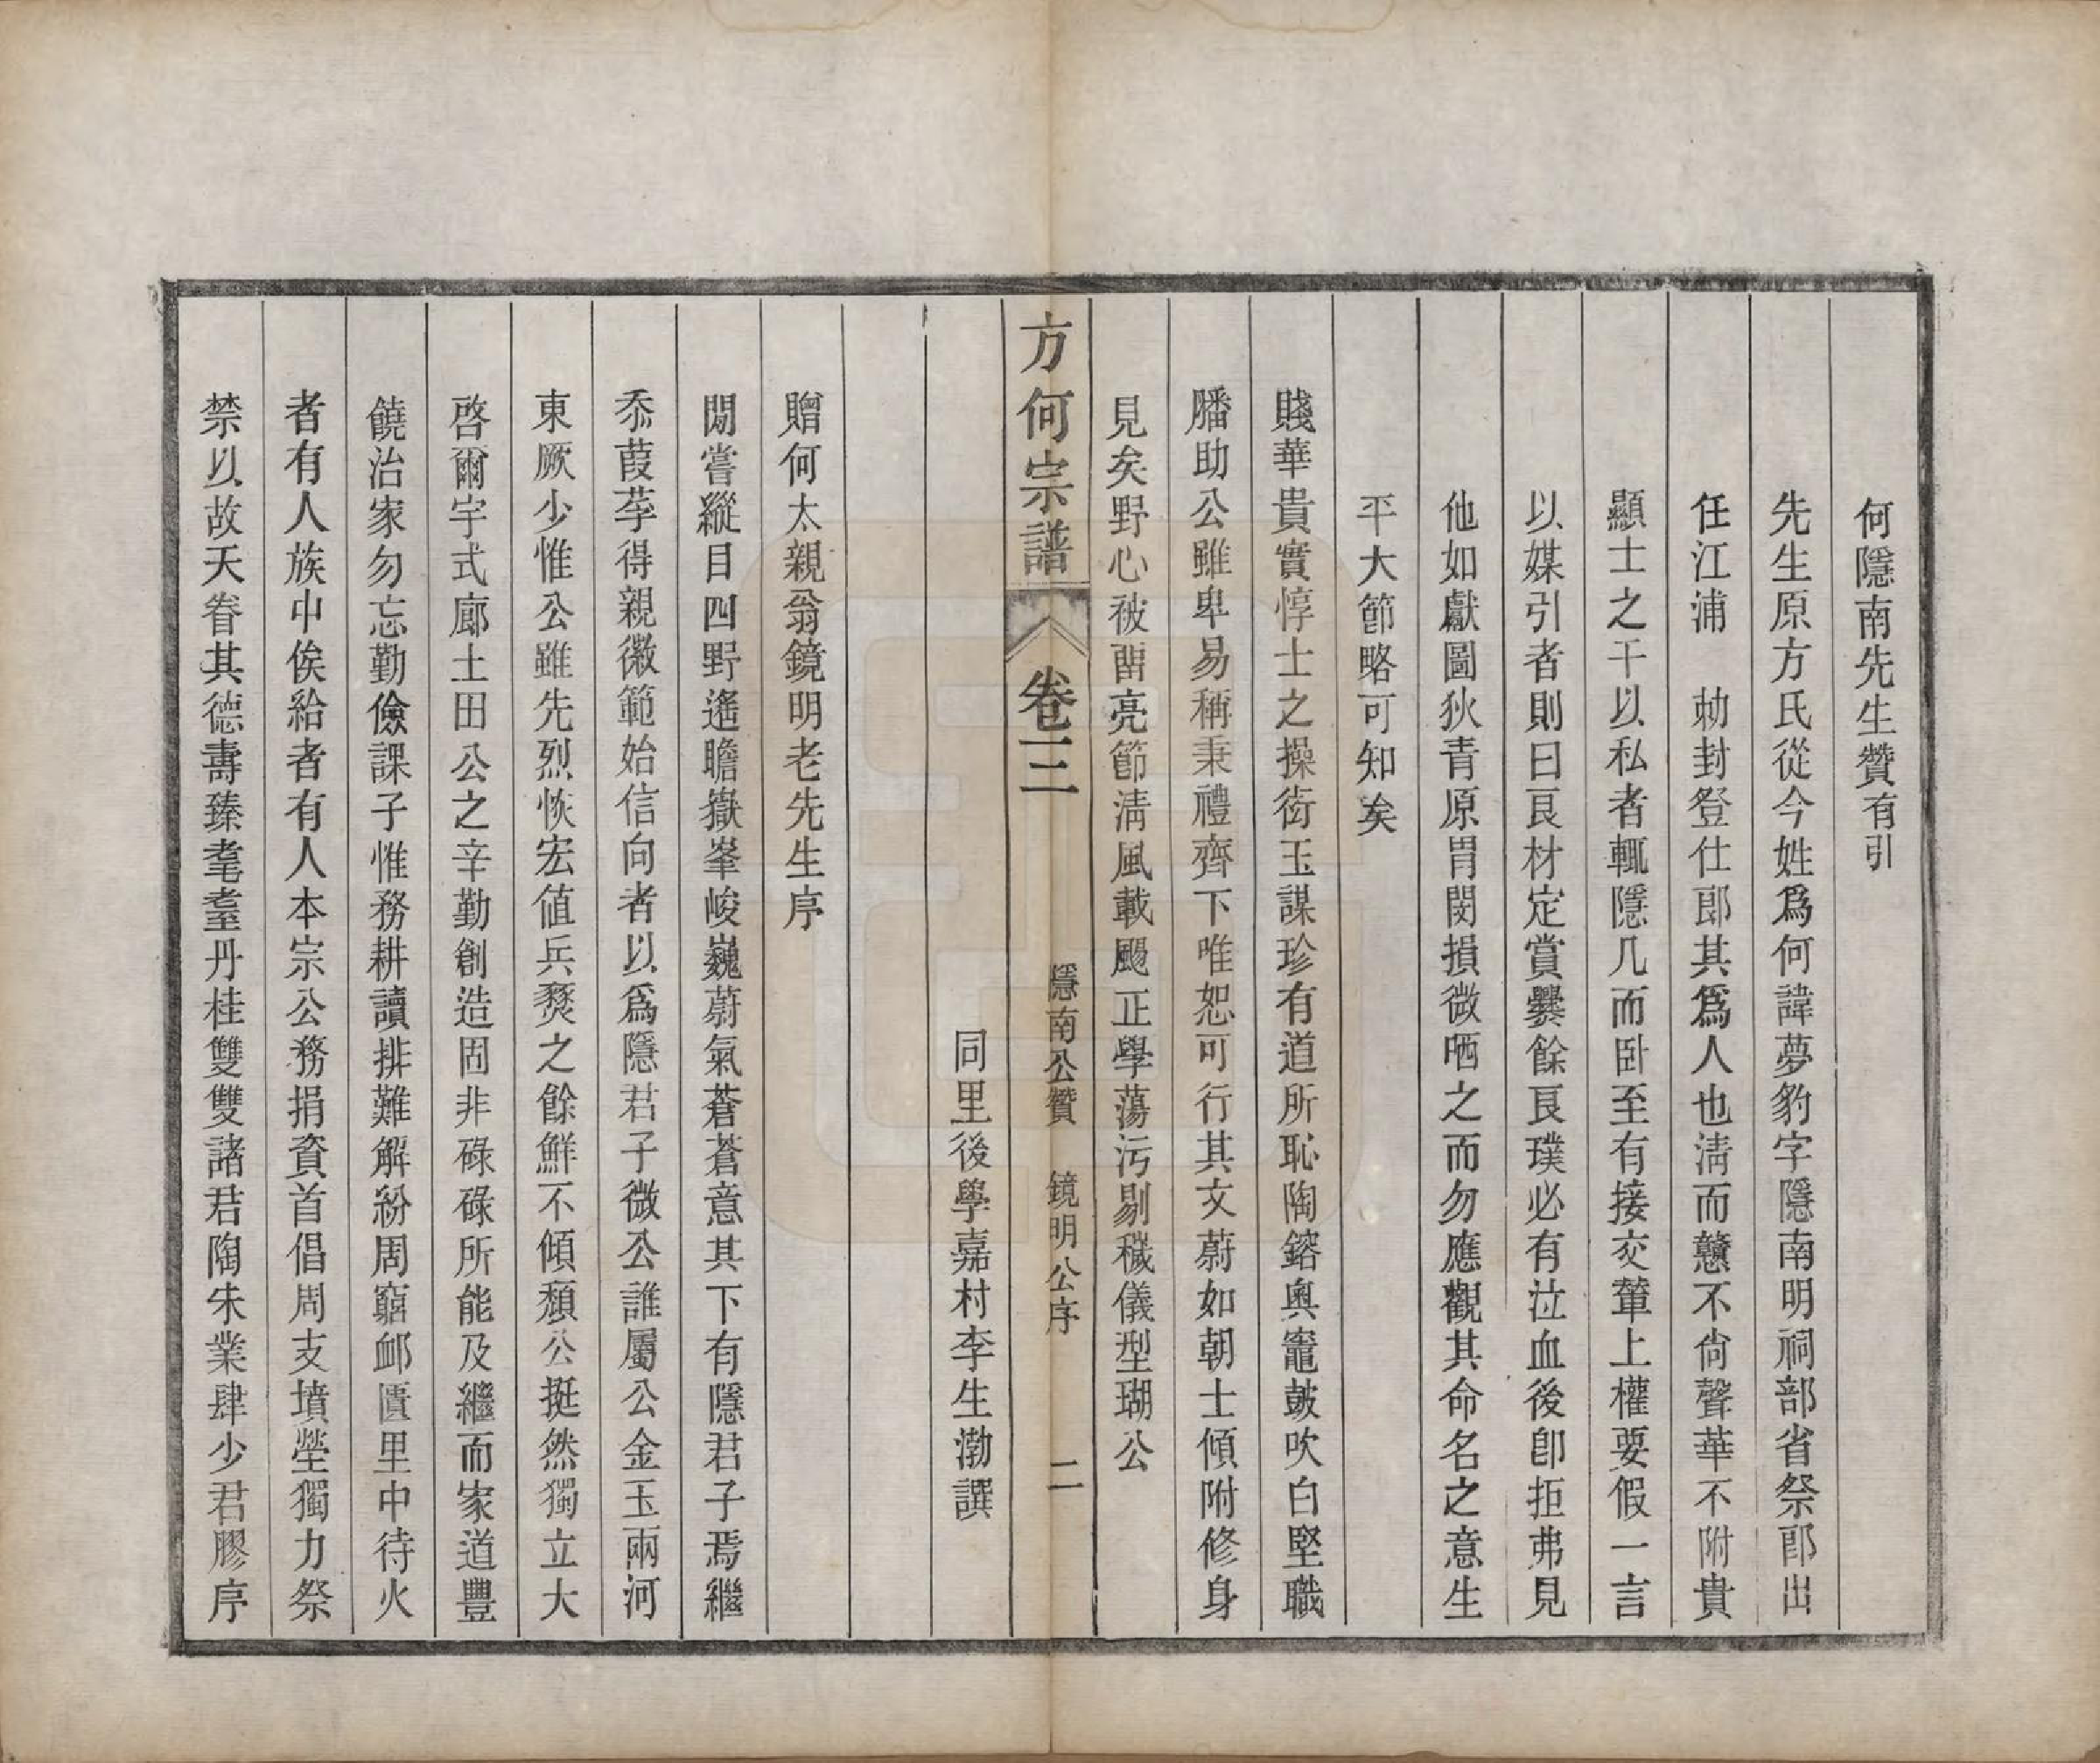 何隱南先生贊有引
先生原方氏從今姓爲何諱夢豹字隱南明祠部省祭郎出
任江浦　勅封登仕郎其爲人也淸而戇不尙聲華不附貴
顯士之干以私者輒隱几而卧至有接交輦上權要假一言
以媒引者則曰良材定賞爨餘良璞必有泣血後卽拒弗見
他如獻圖狄青原胃閔損微哂之而勿應觀其命名之意生
平大節略可知矣
賤華貴實惇士之操衒玉謀珍有道所恥陶鎔奧竈鼓吹白堅職
膰助公雖卑易稱秉禮齊下唯恕可行其文蔚如朝士傾附修身
見矣野心被畱亮節淸風載颺正學蕩污剔穢儀型瑚公
方何宗譜　卷三　隱南公贊　鏡明公序　二
同里後學嘉村李生渤譔
贈何太親翁鏡明老先生序
閒嘗縱目四野遙瞻嶽峯峻巍蔚氣蒼蒼意其下有隱君子焉繼
忝葭莩得親徽範始信向者以爲隱君子微公誰屬公金玉兩河
東厥少惟公雖先烈恢宏値兵燹之餘鮮不傾頽公挺然獨立大
啓爾宇式廓土田公之辛勤創造固非碌碌所能及繼而家道豐
饒治家勿忘勤儉課子惟務耕讀排難解紛周窮卹匱里中待火
者有人族中俟給者有人本宗公務捐資首倡周支墳塋獨力祭
禁以故天眷其德壽臻耄耋丹桂雙雙諸君陶朱業肆少君膠序